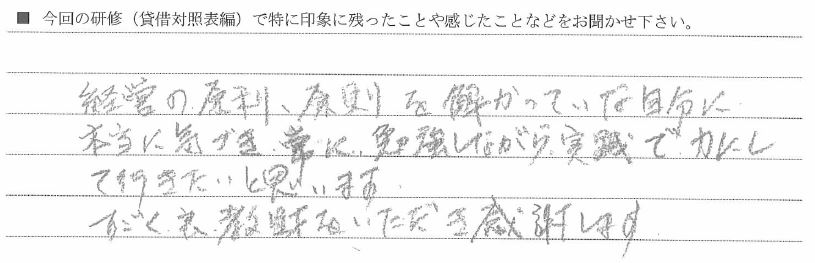 ■ 今回の研修（貸借対照表編）で特に印象に残ったことや感じたことなどをお聞かせ下さい。
経営の原利、原則を解かっていな自分に
本当に気づき、常に、勉強しながら、実践で力にし
て行きたいと思います。
すごく 教示をいただき感謝します